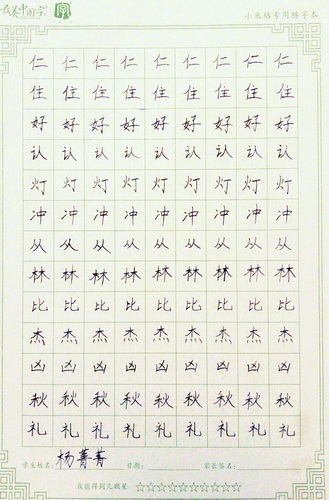 最美中国字 字
小米格专用练字本
仁 仁 仁 仁 仁 仁 仁 仁 仁
住 住 住 住 住 住 住 住 住
好 好 好 好 好 好 好 好 好
认 认 认 认 认 认 认 认 认
灯 灯 灯 灯 灯 灯 灯 灯 灯
冲 冲 冲 冲 冲 冲 冲 冲 冲
从 从 从 从 从 从 从 从 从
林 林 林 林 林 林 林 林 林
比 比 比 比 比 比 比 比 比
杰 杰 杰 杰 杰 杰 杰 杰 杰
凶 凶 凶 凶 凶 凶 凶 凶 凶
秋 秋 秋 秋 秋 秋 秋 秋 秋
礼 礼 礼 礼 礼 礼 礼 礼 礼
学生姓名: 杨菁菁 日期: 家长签名:
我能得到几颗星 ☆☆☆☆☆☆☆☆☆☆